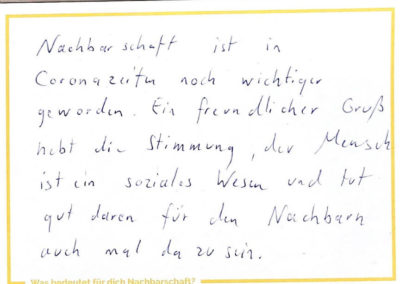 Nachbarschaft ist in
Coronazeiten noch wichtiger
geworden. Ein freundlicher Gruß
hebt die Stimmung, der Mensch
ist ein soziales Wesen und tut
gut daran für den Nachbarn
auch mal da zu sein.
Was bedeutet für dich Nachbarschaft?